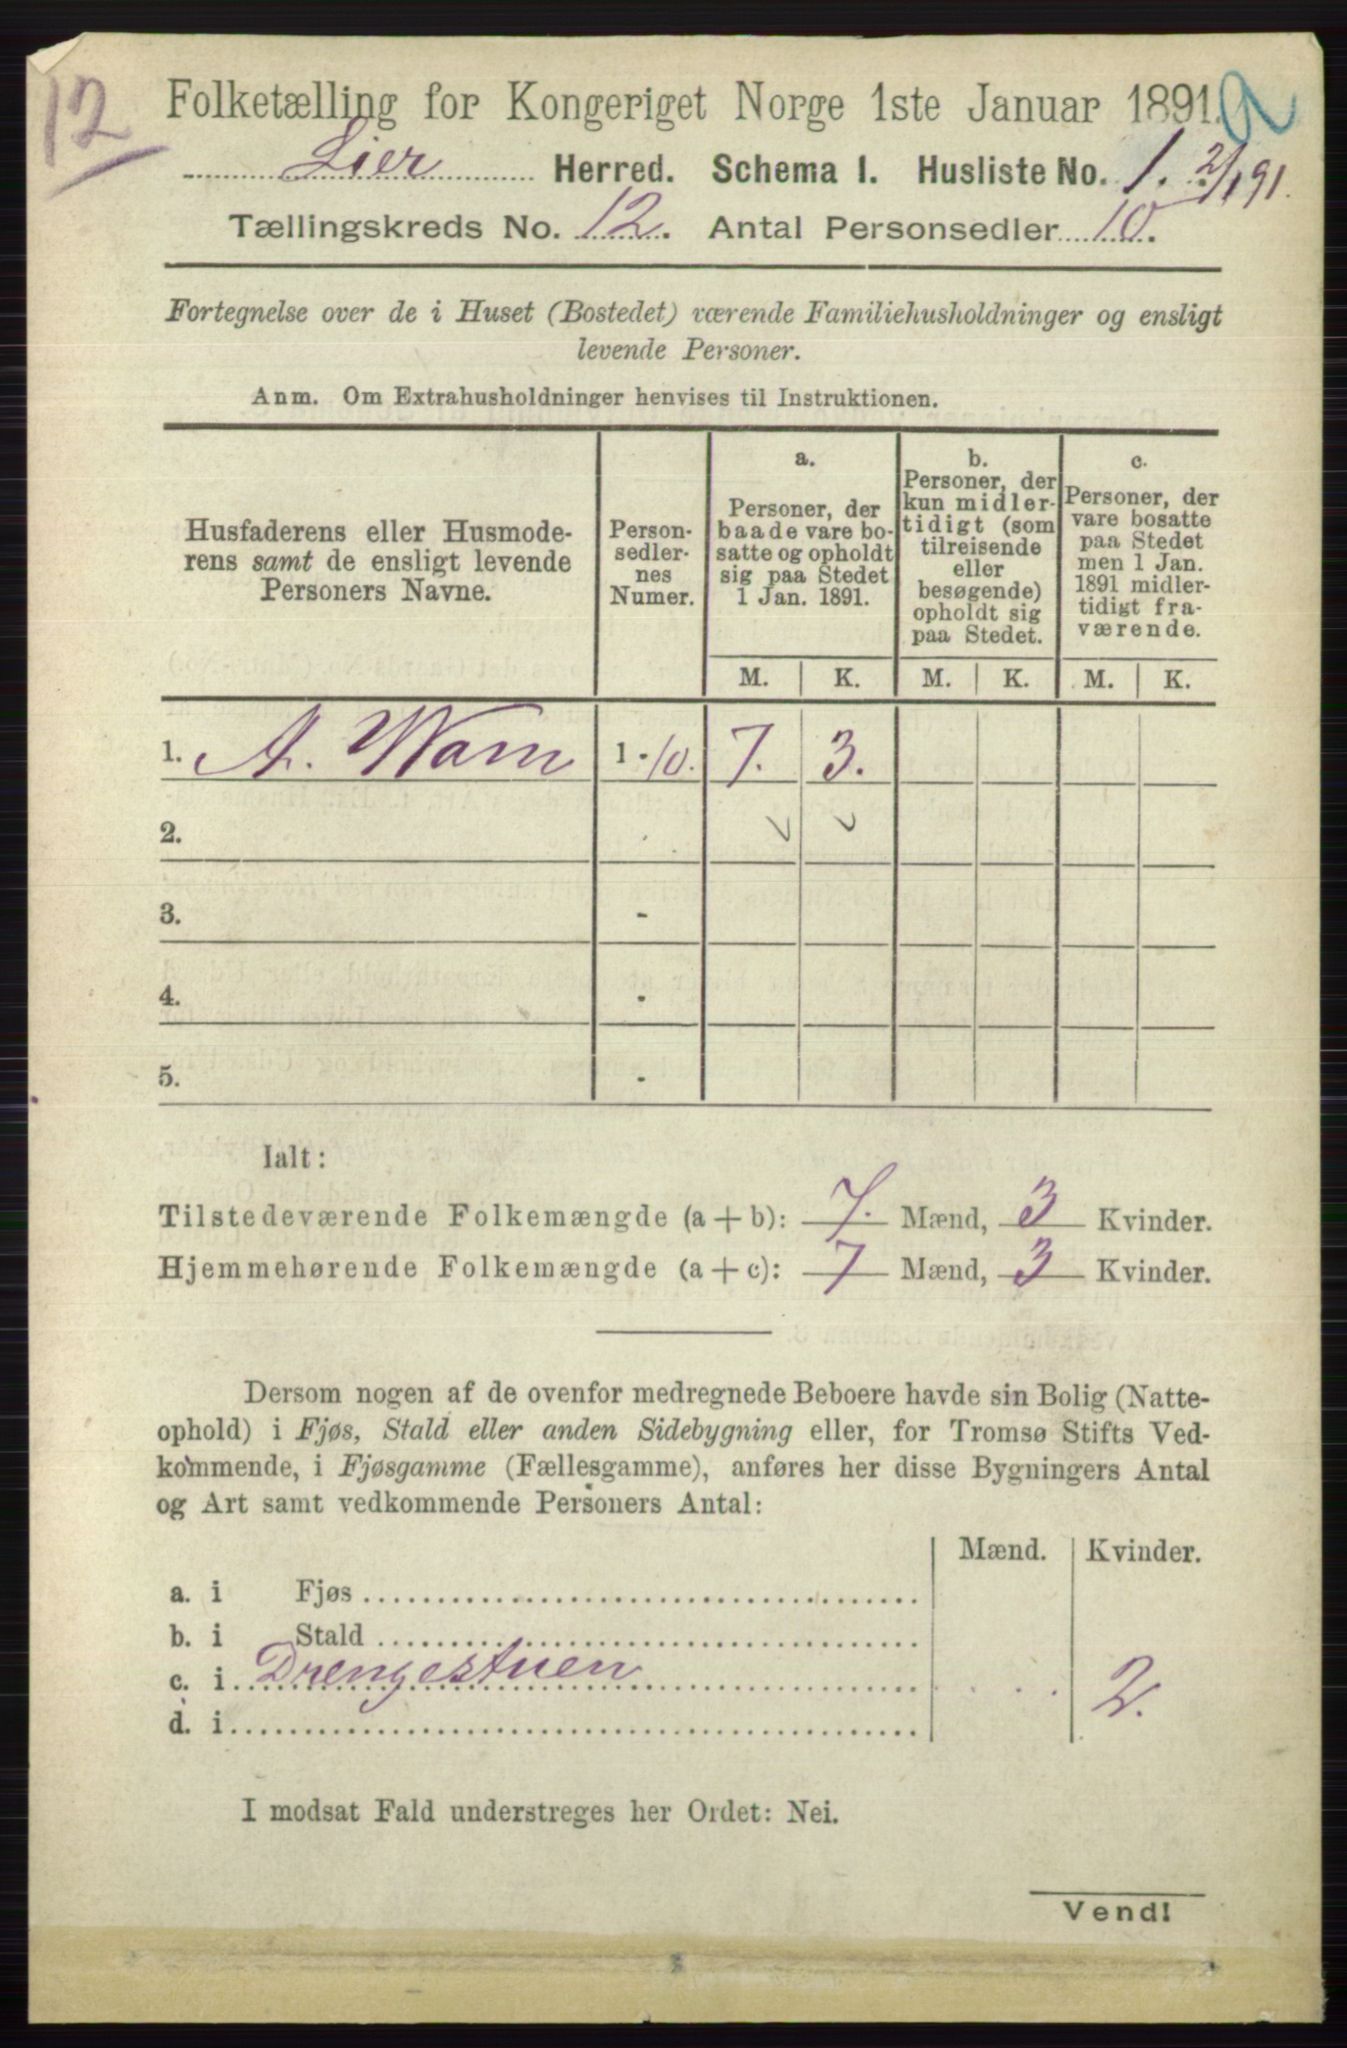 12
Folketælling for Kongeriget Norge 1ste Januar 1891.
Lier Herred. Schema 1. Husliste No. 1. 2/1 91.
Tællingskreds No. 12. Antal Personsedler 10.
Fortegnelse over de i Huset (Bostedet) værende Familiehusholdninger og ensligt
levende Personer.
Anm. Om Extrahusholdninger henvises til Instruktionen.
Husfaderens eller Husmode-
rens samt de ensligt levende
Personers Navne.
Person-
sedler-
nes
Numer.
a.
Personer, der
baade vare bo-
satte og opholdt
sig paa Stedet
1 Jan. 1891.
b.
Personer, der
kun midler-
tidigt (som
tilreisende
eller
besøgende)
opholdt sig
paa Stedet.
c.
Personer, der
vare bosatte
paa Stedet
men 1 Jan.
1891 midler-
tidigt fra-
værende.
M. K. M. K. M. K.
1. A. Warn 1 - 10. 7. 3.
2.
3. -
4. -
5. -
Ialt:
Tilstedeværende Folkemængde (a + b): 7. Mænd, 3 Kvinder.
Hjemmehørende Folkemængde (a + c): 7 Mænd, 3 Kvinder.
Dersom nogen af de ovenfor medregnede Beboere havde sin Bolig (Natte-
ophold) i Fjøs, Stald eller anden Sidebygning eller, for Tromsø Stifts Ved-
kommende, i Fjøsgamme (Fællesgamme), anføres her disse Bygningers Antal
og Art samt vedkommende Personers Antal:
Mænd. Kvinder.
a. i Fjøs
b. i Stald
c. i Drengestuen 2.
d. i
I modsat Fald understreges her Ordet: Nei.
Vend!